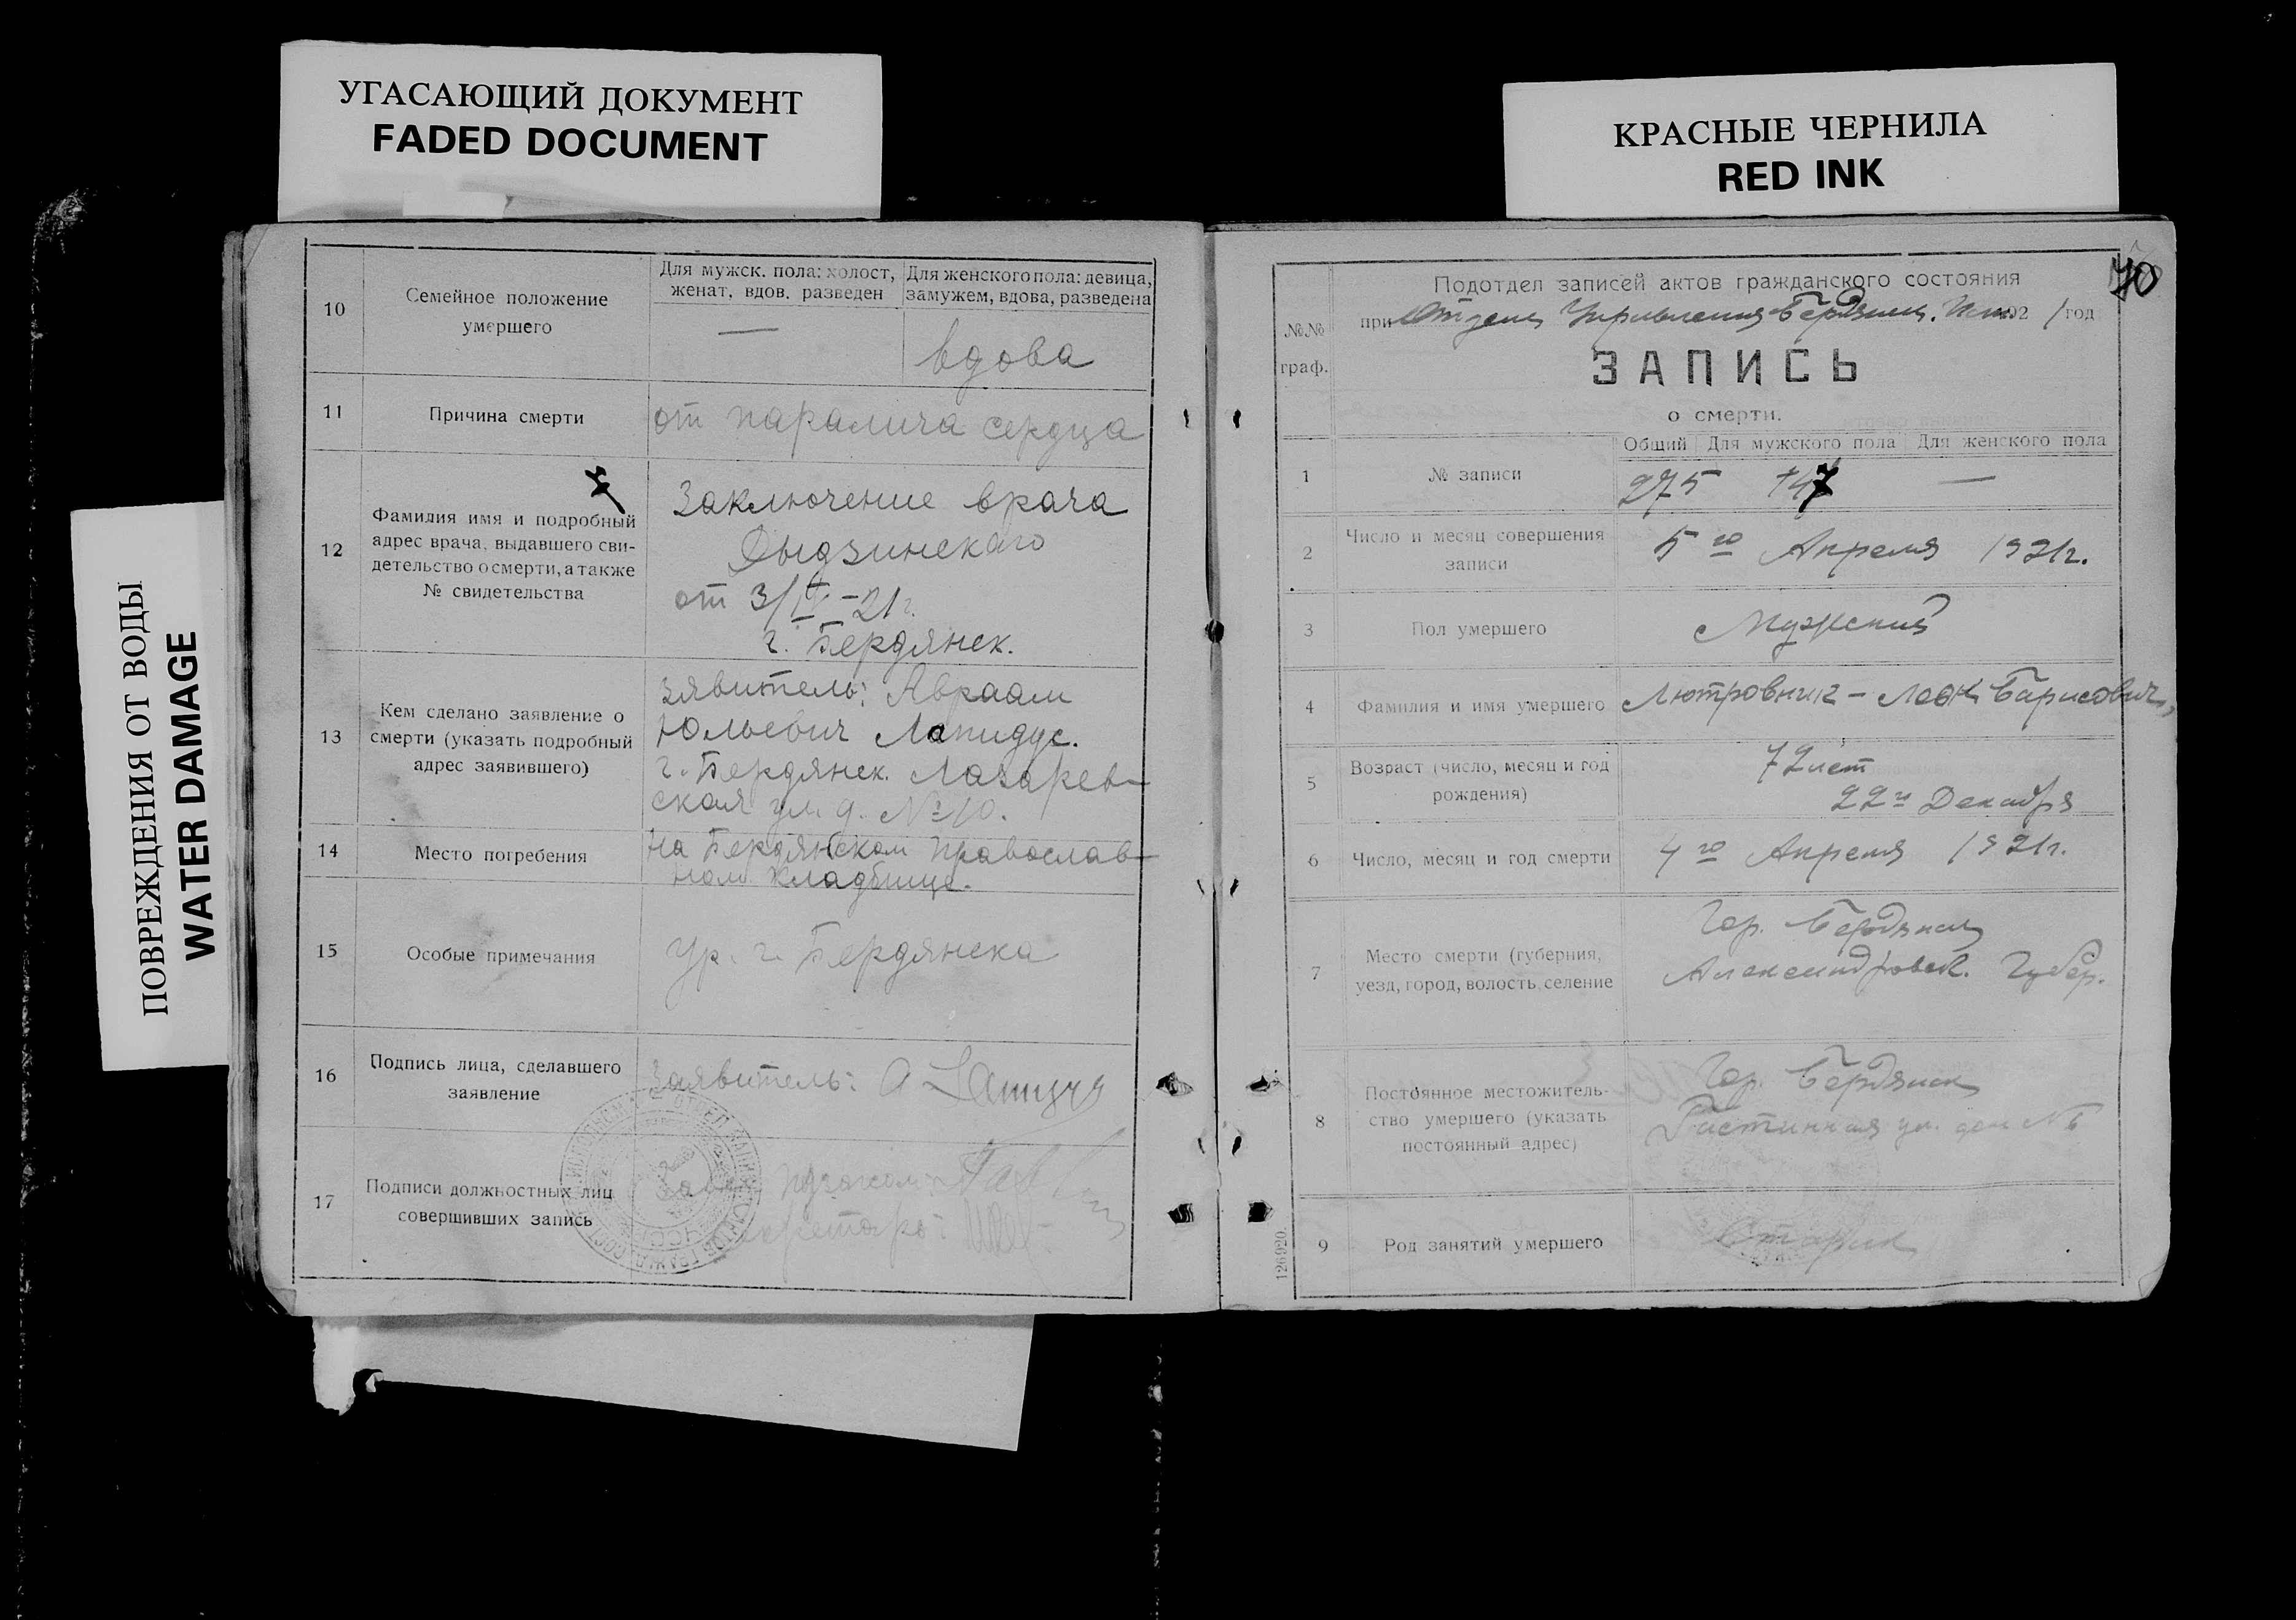 УГАСАЮЩИЙ ДОКУМЕНТ
FADED DOCUMENT
КРАСНЫЕ ЧЕРНИЛА
RED INK
ПОВРЕЖДЕНИЯ ОТ ВОДЫ
WATER DAMAGE
10
Семейное положение
умершего
Для мужск. пола: холост,
женат, вдов. разведен
Для женского пола: девица,
замужем, вдова, разведена
—
вдова
11
Причина смерти
от паралича сердца
12
Фамилия имя и подробный
адрес врача, выдавшего сви-
детельство о смерти, а также
№ свидетельства
Заключение врача
от 3/IV-21 г.
г. Бердянск.
13
Кем сделано заявление о
смерти (указать подробный
адрес заявившего)
заявитель: Авраам
Юльевич Лапидус.
г. Бердянск. Лазарев-
ская ул. д. № 10.
14
Место погребения
на Бердянском православ-
ном кладбище.
15
Особые примечания
Ур. г. Бердянска
16
Подпись лица, сделавшего
заявление
Заявитель: А Лапидус
17
Подписи должностных лиц
совершивших запись
Секретарь:
70
№№
граф.
Подотдел записей актов гражданского состояния
при Отделе Управления Бердянск. 192 1 год
ЗАПИСЬ
о смерти.
Общий
Для мужского пола
Для женского пола
1
№ записи
275
147
—
2
Число и месяц совершения
записи
5 го Апреля 1921 г.
3
Пол умершего
Мужский
4
Фамилия и имя умершего
Лютровник – Леон Барисович,
5
Возраст (число, месяц и год
рождения)
72 лет
22 Декабря
6
Число, месяц и год смерти
4 го Апреля 1921 г.
7
Место смерти (губерния,
уезд, город, волость, селение
Гор. Бердянск
Александровск. Губер.
8
Постоянное местожитель-
ство умершего (указать
постоянный адрес)
Гор. Бердянск
ул. дом №
9
Род занятий умершего
Старик
126920.